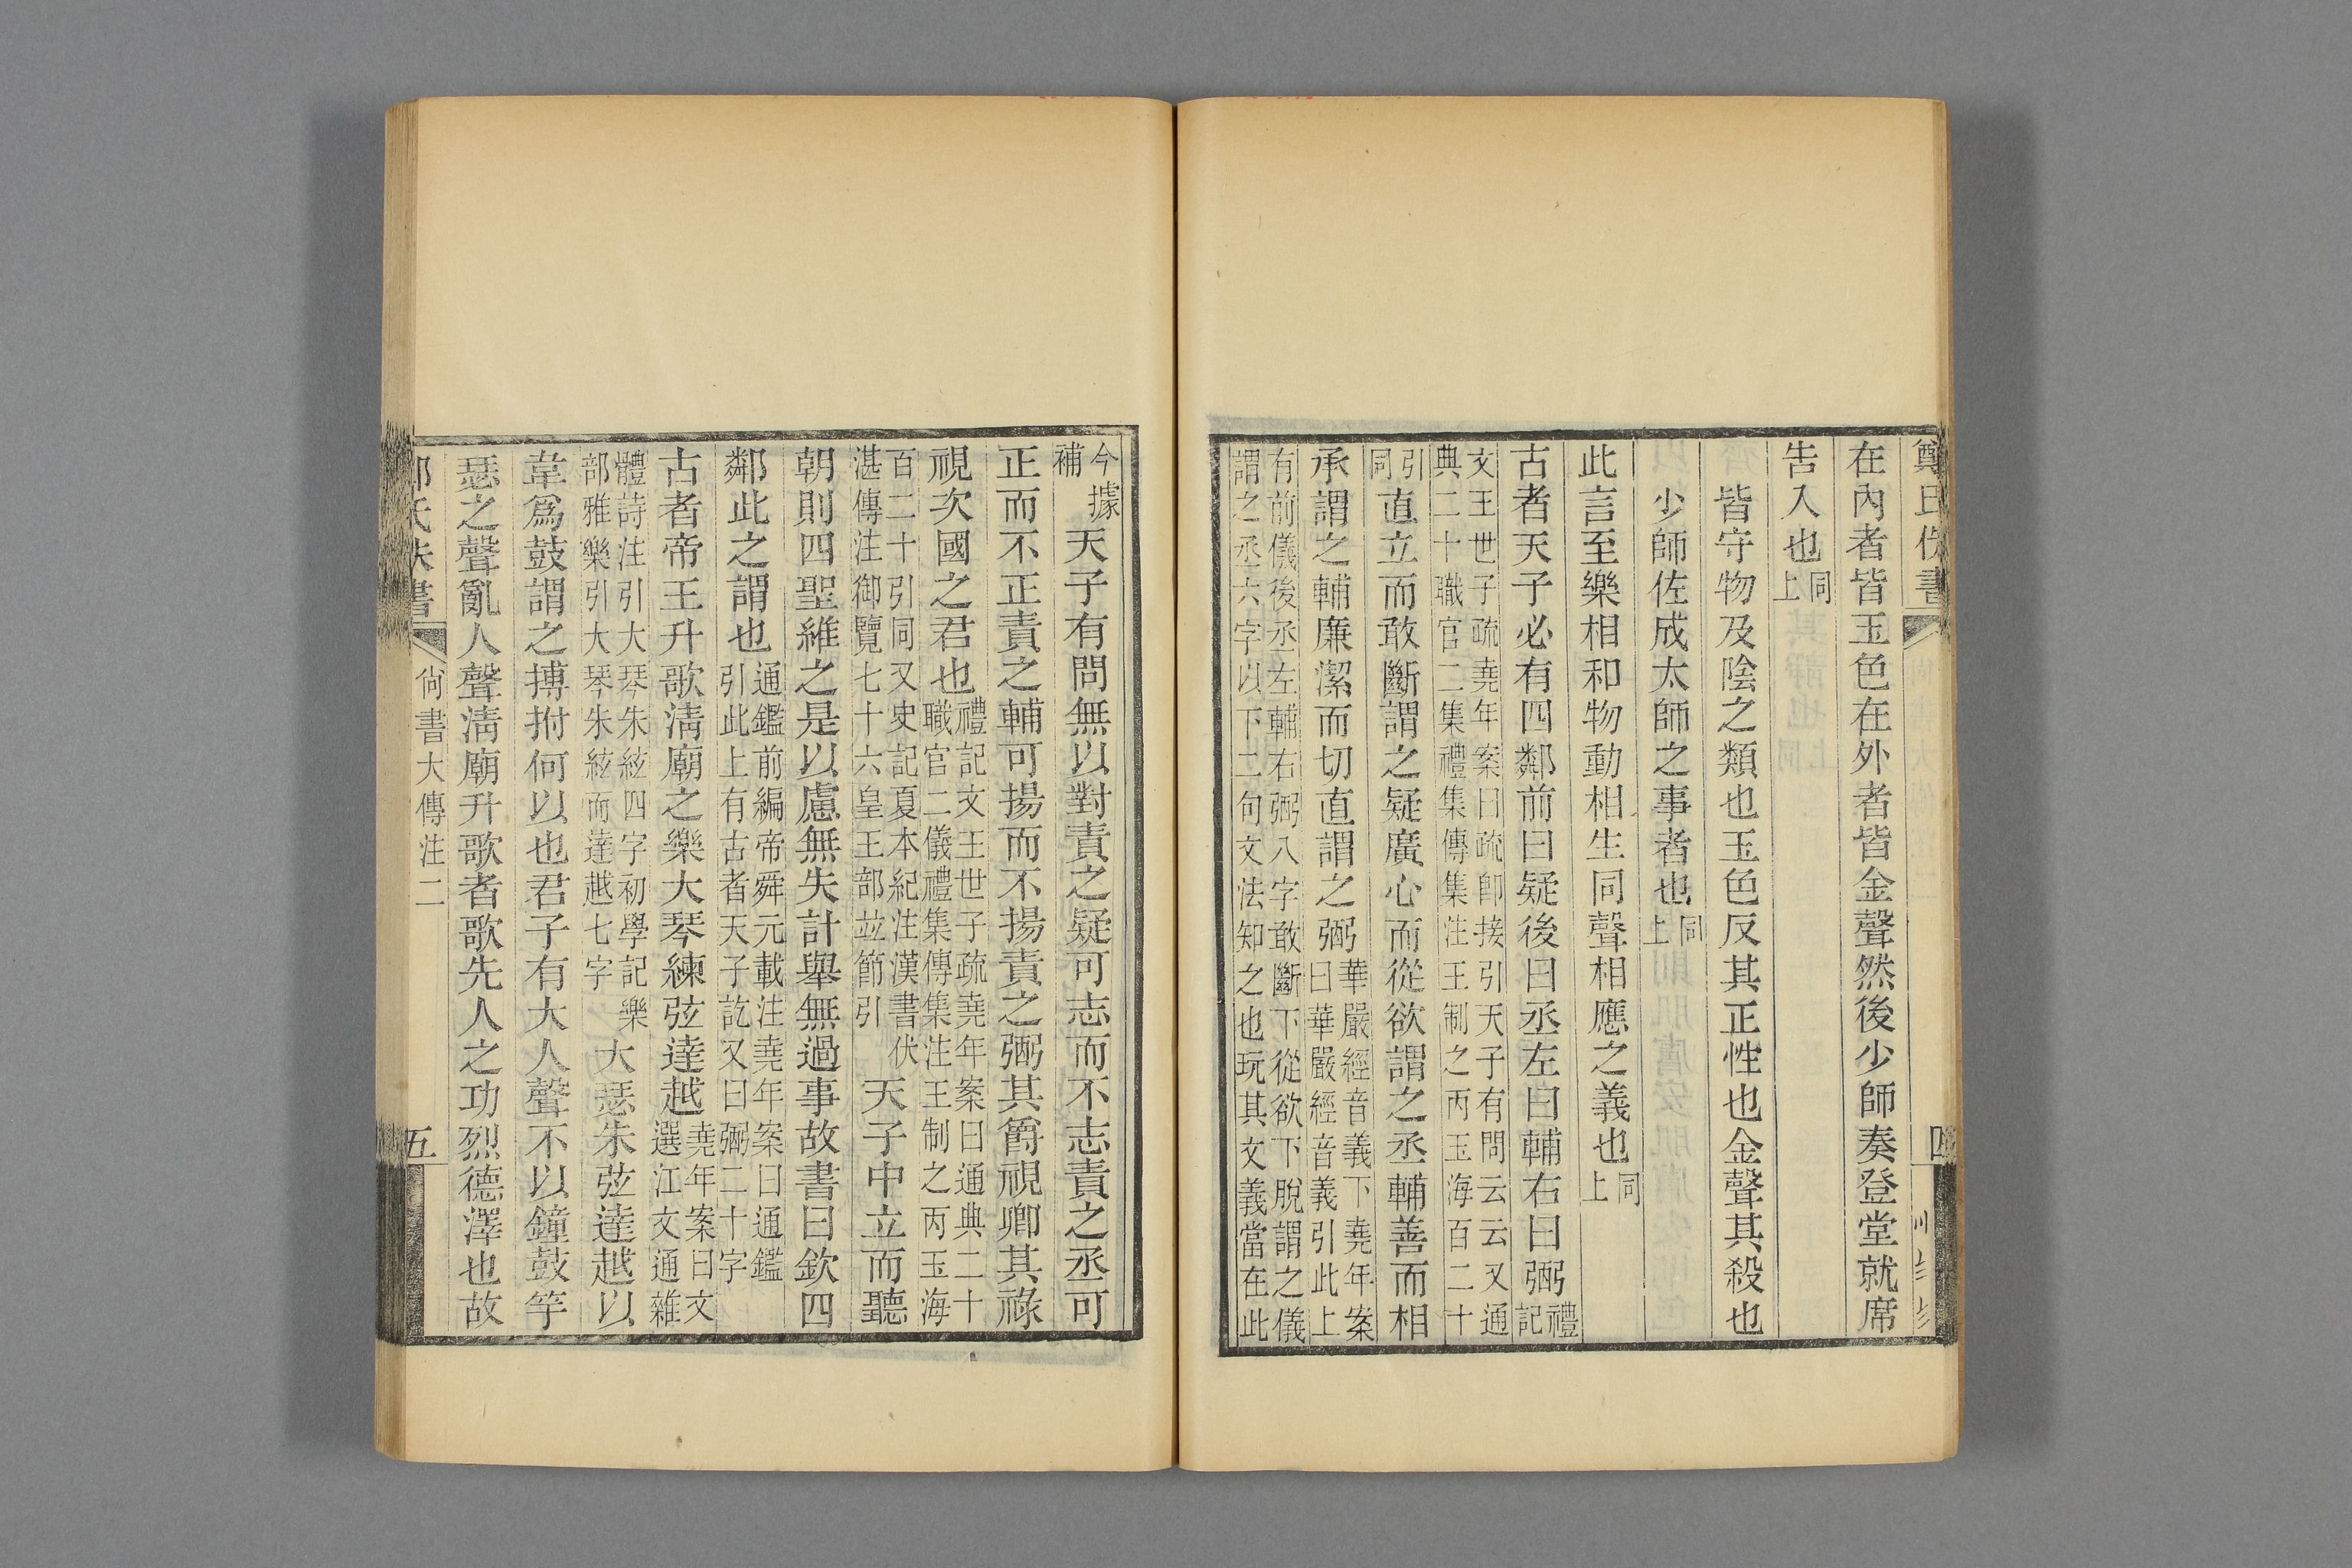 鄭氏佚書 四
在內者皆玉色在外者皆金聲然後少師奏登堂就席
告人也同上
皆守物及陰之類也玉色反其正性也金聲其殺也
少師佐成太師之事者也同上
此言至樂相和物動相生同聲相應之義也同上
古者天子必有四鄰前曰疑後曰丞左曰輔右曰弼禮記
文王世子疏堯年案曰疏卽接引天子有問云云又通
典二十職官二集禮集傳集注王制之丙玉海百二十
引同直立而敢斷謂之疑廣心而從欲謂之丞輔善而相
承謂之輔廉潔而切直謂之弼華嚴經音義下堯年案
曰華嚴經音義引此上
有前儀後丞左輔右弼八字敢斷下從欲下脫謂之儀
謂之丞六字以下二句文法知之也玩其文義當在此
今據補天子有問無以對責之疑可志而不志責之丞可
正而不正責之輔可揚而不揚責之弼其爵視卿其祿
視次國之君也禮記文王世子疏堯年案曰通典二十
職官二儀禮集傳集注王制之丙玉海
百二十引同又史記夏本紀注漢書伏
湛傳注御覽七十六皇王部並節引天子中立而聽
朝則四聖維之是以慮無失計舉無過事故書曰欽四
鄰此之謂也通鑑前編帝舜元載注堯年案曰通鑑
引此上有古者天子訖又曰弼二十字
古者帝王升歌淸廟之樂大琴練弦達越堯年案曰文
選江文通雜
體詩注引大琴朱絃四字初學記樂
部雅樂引大琴朱絃而達越七字大瑟朱弦達越以
韋爲鼓謂之搏拊何以也君子有大人聲不以鐘鼓竽
瑟之聲亂人聲淸廟升歌者歌先人之功烈德澤也故
鄭氏佚書 尙書大傳注二 五